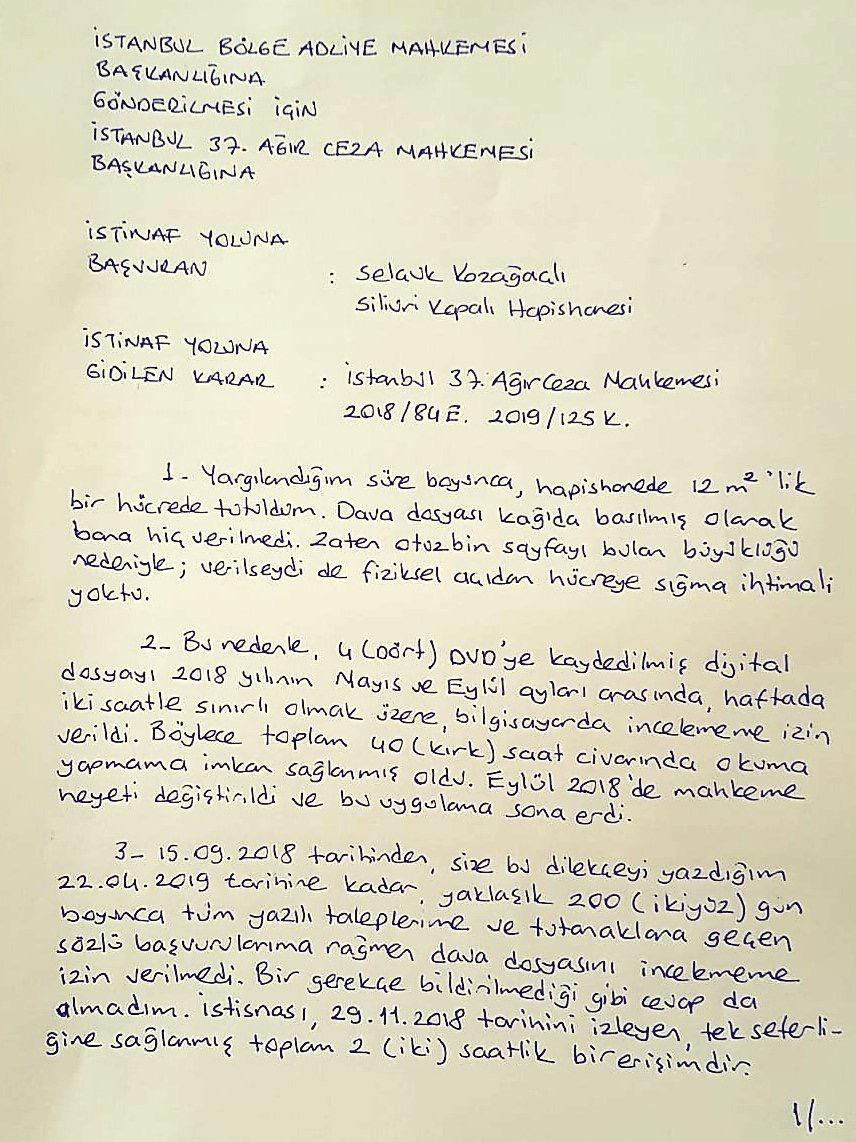 İSTANBUL BÖLGE ADLİYE MAHKEMESİ
BAŞKANLIĞINA
GÖNDERİLMESİ İÇİN
İSTANBUL 37. AĞIR CEZA MAHKEMESİ
BAŞKANLIĞINA
İSTİNAF YOLUNA
BAŞVURAN : Selçuk Kozağaçlı
Silivri Kapalı Hapishanesi
İSTİNAF YOLUNA
GİDİLEN KARAR : İstanbul 37. Ağır Ceza Mahkemesi
2018/84 E. 2019/125 K.
1- Yargılandığım süre boyunca, hapishanede 12 m² 'lik
bir hücrede tutuldum. Dava dosyası kağıda basılmış olarak
bana hiç verilmedi. Zaten otuzbin sayfayı bulan büyüklüğü
nedeniyle; verilseydi de fiziksel açıdan hücreye sığma ihtimali
yoktu.
2- Bu nedenle, 4 (dört) DVD'ye kaydedilmiş dijital
dosyayı 2018 yılının Mayıs ve Eylül ayları arasında, haftada
iki saatle sınırlı olmak üzere, bilgisayarda incelememe izin
verildi. Böylece toplam 40 (kırk) saat civarında okuma
yapmama imkan sağlanmış oldu. Eylül 2018'de mahkeme
heyeti değiştirildi ve bu uygulama sona erdi.
3- 15.09.2018 tarihinden, size bu dilekçeyi yazdığım
22.04.2019 tarihine kadar, yaklaşık 200 (ikiyüz) gün
boyunca tüm yazılı taleplerime ve tutanaklara geçen
sözlü başvurularıma rağmen dava dosyasını incelememe
izin verilmedi. Bir gerekçe bildirilmediği gibi cevap da
almadım. İstisnası, 29.11.2018 tarihini izleyen, tek seferli-
ğine sağlanmış toplam 2 (iki) saatlik bir erişimdir.
1/...